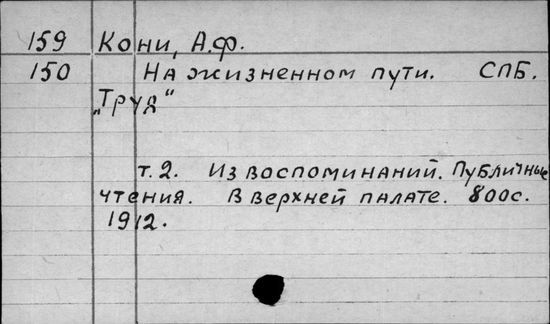 159 Кони, А.Ф.
150 На жизненном пути. СПБ.
„Труд“
т. 2. Из воспоминаний. Публичные
чтения. В верхней палате. 800с.
1912.